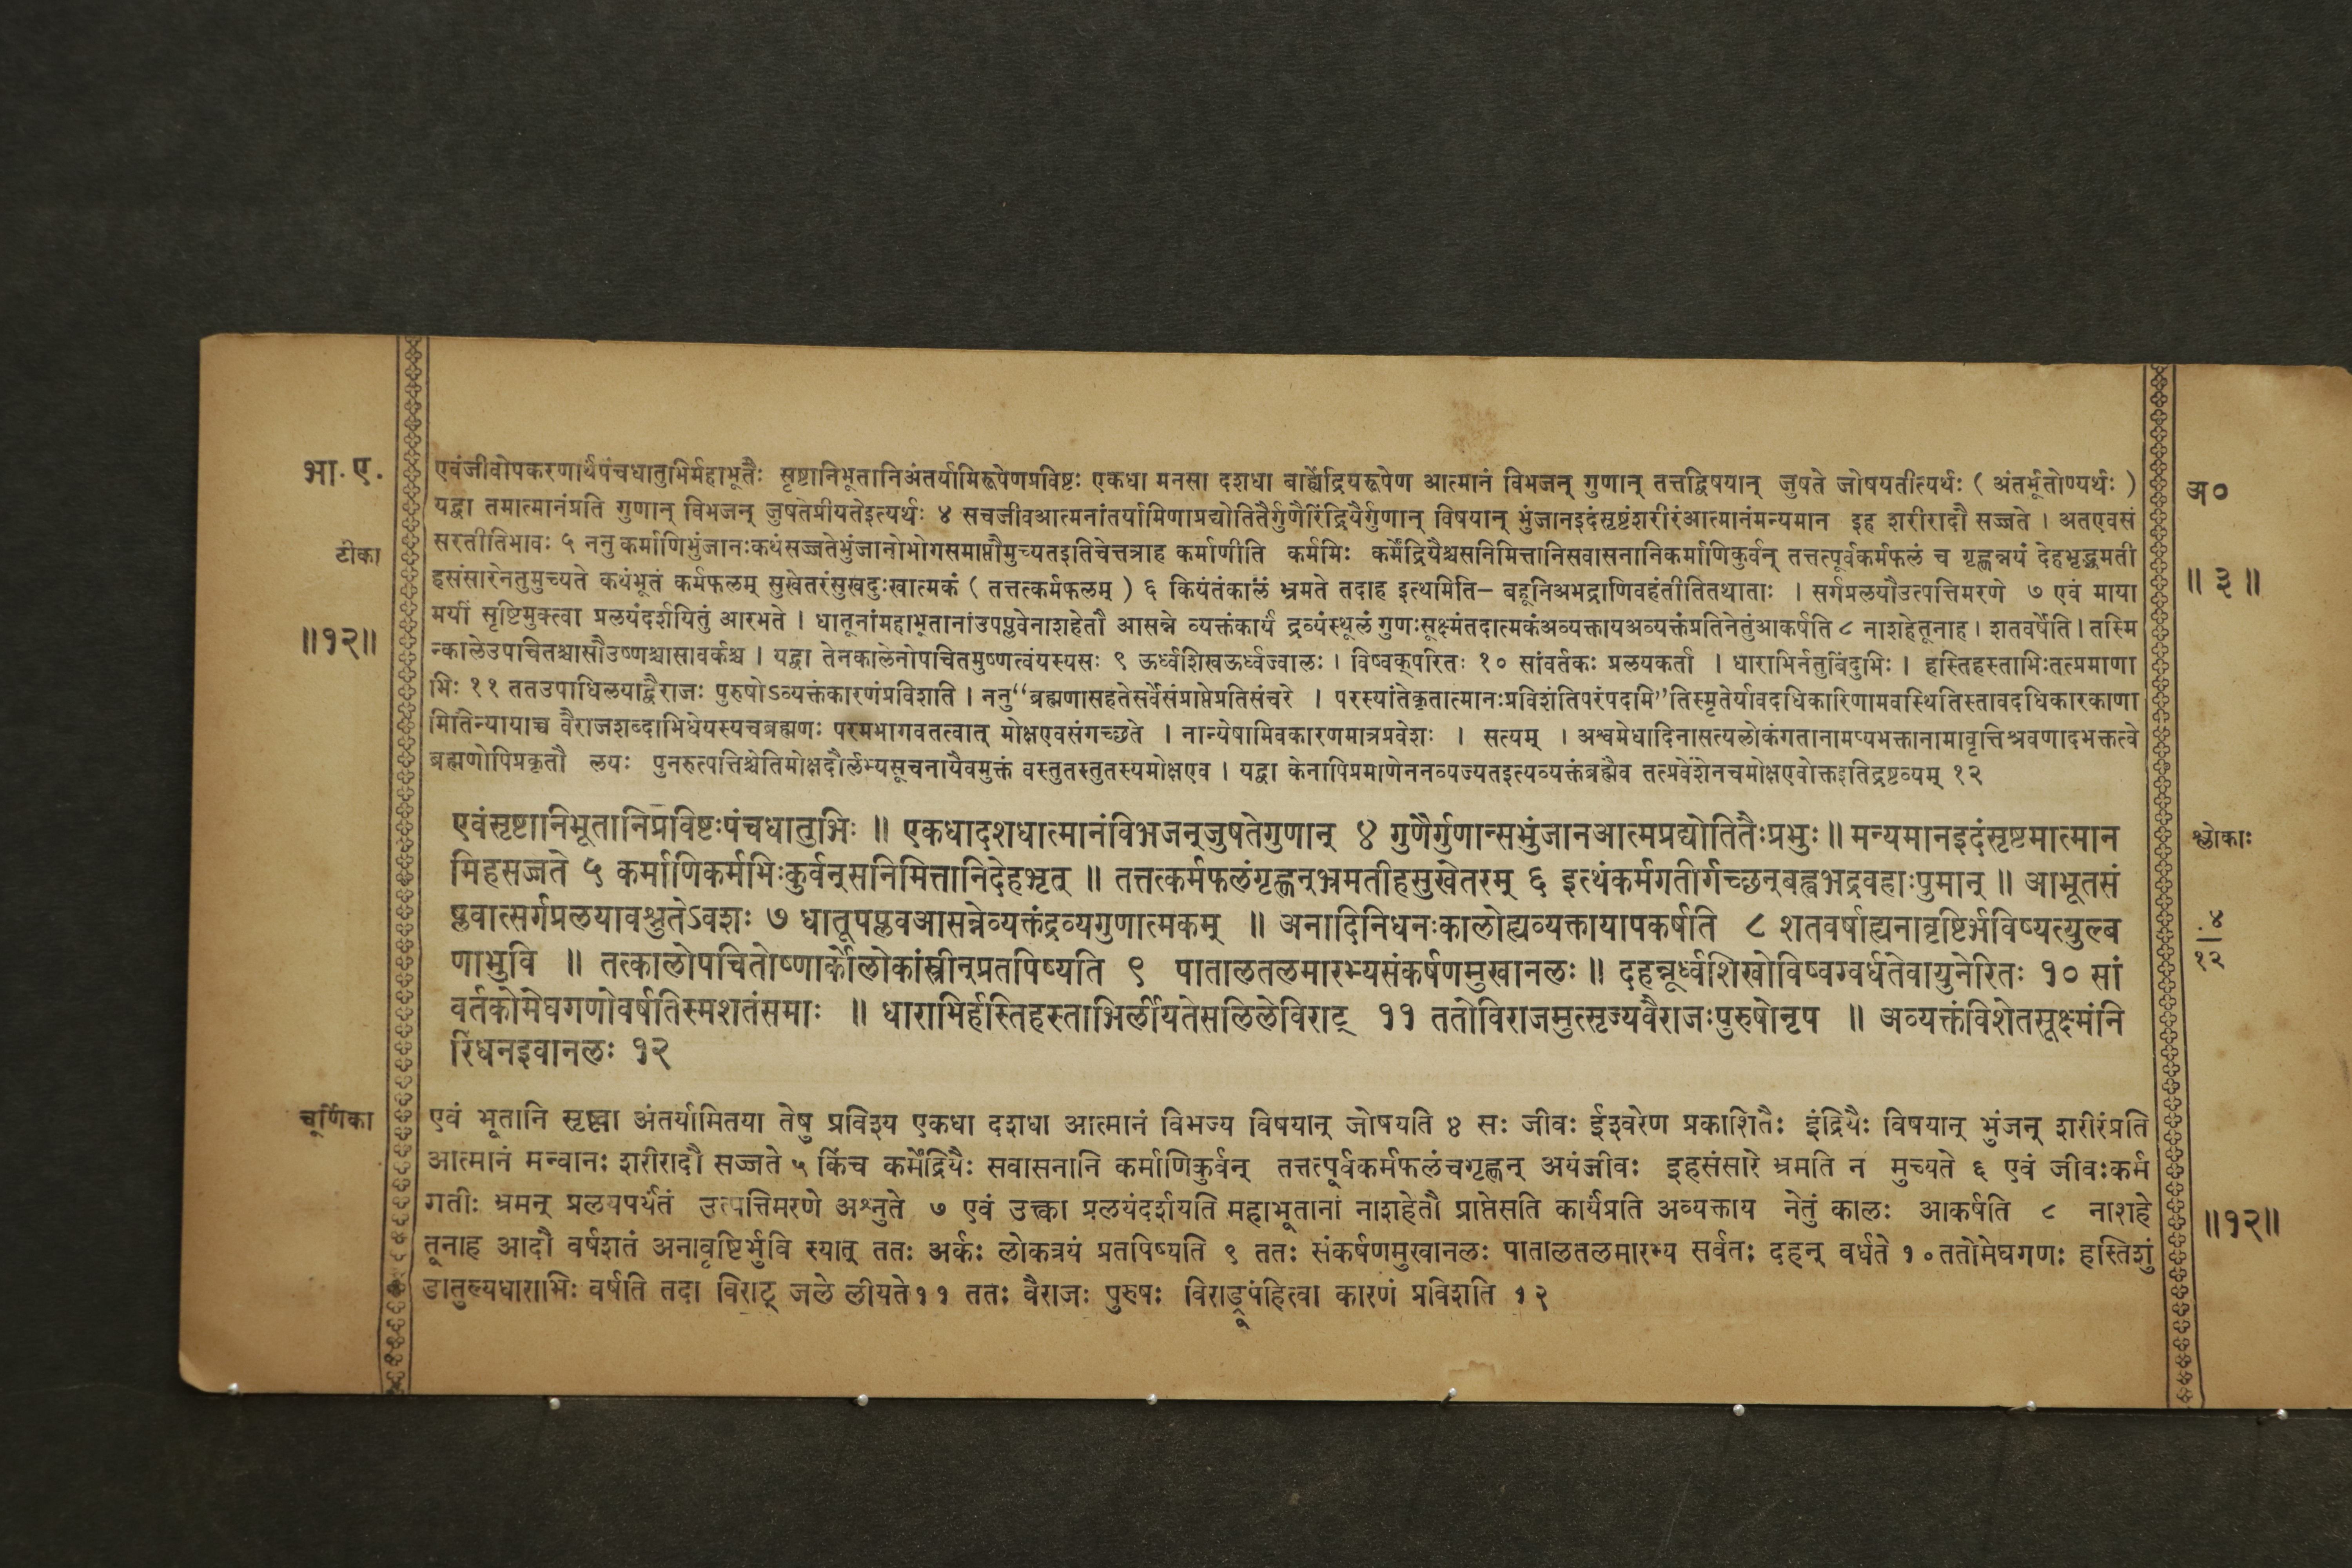 भा. ए.
एवंजीवोपकरणार्थपंचधातुभिर्महाभूतैः सृष्टानिभूतानिअंतर्यामिरूपेणप्रविष्टः एकधा मनसा दशधा बाह्येंद्रियरूपेण आत्मानं विभजन् गुणान् तत्तद्विषयान् जुषते जोषयतीत्यर्थः ( अंतर्भूतोण्यर्थः )
अ०
यद्वा तमात्मानंप्रति गुणान् विभजन् जुषतेप्रीयतेइत्यर्थः ४ सचजीवआत्मनांतर्यामिणाप्रद्योतितैर्गुणैरिंद्रियैर्गुणान् विषयान् भुंजानइदंसृष्टंशरीरंआत्मानंमन्यमान इह शरीरादौ सज्जते । अतएवसं
टीका
सरतीतिभावः ५ ननु कर्माणिभुंजानःकथंसज्जतेभुंजानोभोगसमाप्तौमुच्यतइतिचेत्तत्राह कर्माणीति कर्मभिः कर्मेंद्रियैश्चसनिमित्तानिसवासनानिकर्माणिकुर्वन् तत्तत्पूर्वकर्मफलं च गृह्णन्नयं देहभृद्भ्रमती
॥ ३ ॥
हसंसारेनतुमुच्यते कथंभूतं कर्मफलम् सुखेतरंसुखदुःखात्मकं ( तत्तत्कर्मफलम् ) ६ कियंतंकालं भ्रमते तदाह इत्थमिति– बहूनिअभद्राणिवहंतीतितथाताः । सर्गप्रलयौउत्पत्तिमरणे ७ एवं माया
॥१२॥
मयीं सृष्टिमुक्त्वा प्रलयंदर्शयितुं आरभते । धातूनांमहाभूतानांउपप्लवेनाशहेतौ आसन्ने व्यक्तंकार्यं द्रव्यंस्थूलं गुणःसूक्ष्मंतदात्मकंअव्यक्तायअव्यक्तंप्रतिनेतुंआकर्षति ८ नाशहेतूनाह । शतवर्षेति । तस्मि
न्कालेउपचितश्चासौउष्णश्चासावर्कश्च । यद्वा तेनकालेनोपचितमुष्णत्वंयस्यसः ९ ऊर्ध्वशिखऊर्ध्वज्वालः । विष्वक्परितः १० सांवर्तकः प्रलयकर्ता । धाराभिर्नतुबिंदुभिः । हस्तिहस्ताभिःतत्प्रमाणा
भिः ११ ततउपाधिलयाद्वैराजः पुरुषोऽव्यक्तंकारणंप्रविशति । ननु“ब्रह्मणासहतेसर्वेसंप्राप्तेप्रतिसंचरे । परस्यांतेकृतात्मानःप्रविशंतिपरंपदमि”तिस्मृतेर्यावदधिकारिणामवस्थितिस्तावदधिकारकाणा
मितिन्यायाच्च वैराजशब्दाभिधेयस्यचब्रह्मणः परमभागवतत्वात् मोक्षएवसंगच्छते । नान्येषामिवकारणमात्रप्रवेशः । सत्यम् । अश्वमेधादिनासत्यलोकंगतानामप्यभक्तानामावृत्तिश्रवणादभक्तत्वे
ब्रह्मणोपिप्रकृतौ लयः पुनरुत्पत्तिश्चेतिमोक्षदौर्लभ्यसूचनायैवमुक्तं वस्तुतस्तुतस्यमोक्षएव । यद्वा केनापिप्रमाणेननव्यज्यतइत्यव्यक्तंब्रह्मैव तत्प्रवेशेनचमोक्षएवोक्तइतिद्रष्टव्यम् १२
एवंसृष्टानिभूतानिप्रविष्टःपंचधातुभिः ॥ एकधादशधात्मानंविभजन्जुषतेगुणान् ४ गुणैर्गुणान्सभुंजानआत्मप्रद्योतितैःप्रभुः ॥ मन्यमानइदंसृष्टमात्मान
श्लोकाः
मिहसज्जते ५ कर्माणिकर्मभिःकुर्वन्सनिमित्तानिदेहभृत् ॥ तत्तत्कर्मफलंगृह्णन्भ्रमतीहसुखेतरम् ६ इत्थंकर्मगतीर्गच्छन्बह्वभद्रवहाःपुमान् ॥ आभूतसं
प्लवात्सर्गप्रलयावश्नुतेऽवशः ७ धातूपप्लवआसन्नेव्यक्तंद्रव्यगुणात्मकम् ॥ अनादिनिधनःकालोह्यव्यक्तायापकर्षति ८ शतवर्षाह्यनावृष्टिर्भविष्यत्युल्ब
४
१२
णाभुवि ॥ तत्कालोपचितोष्णार्कोलोकांस्त्रीन्प्रतपिष्यति ९ पातालतलमारभ्यसंकर्षणमुखानलः ॥ दहन्नूर्ध्वशिखोविष्वग्वर्धतेवायुनेरितः १० सां
वर्तकोमेघगणोवर्षतिस्मशतंसमाः ॥ धाराभिर्हस्तिहस्ताभिर्लीयतेसलिलेविराट् ११ ततोविराजमुत्सृज्यवैराजःपुरुषोनृप ॥ अव्यक्तंविशेतसूक्ष्मंनि
रिंधनइवानलः १२
चूर्णिका
एवं भूतानि सृष्ट्वा अंतर्यामितया तेषु प्रविश्य एकधा दशधा आत्मानं विभज्य विषयान् जोषयति ४ सः जीवः ईश्वरेण प्रकाशितैः इंद्रियैः विषयान् भुंजन् शरीरंप्रति
आत्मानं मन्वानः शरीरादौ सज्जते ५ किंच कर्मेंद्रियैः सवासनानि कर्माणिकुर्वन् तत्तत्पूर्वकर्मफलंचगृह्णन् अयंजीवः इहसंसारे भ्रमति न मुच्यते ६ एवं जीवःकर्म
गतीः भ्रमन् प्रलयपर्यंतं उत्पत्तिमरणे अश्नुते ७ एवं उत्क्वा प्रलयंदर्शयति महाभूतानां नाशहेतौ प्राप्तेसति कार्यंप्रति अव्यक्ताय नेतुं कालः आकर्षति ८ नाशहे
॥१२॥
तूनाह आदौ वर्षशतं अनावृष्टिर्भुवि स्यात् ततः अर्कः लोकत्रयं प्रतपिष्यति ९ ततः संकर्षणमुखानलः पातालतलमारभ्य सर्वतः दहन् वर्धते १० ततोमेघगणः हस्तिशुं
डातुल्यधाराभिः वर्षति तदा विराट् जले लीयते११ ततः वैराजः पुरुषः विराड्रूपंहित्वा कारणं प्रविशति १२